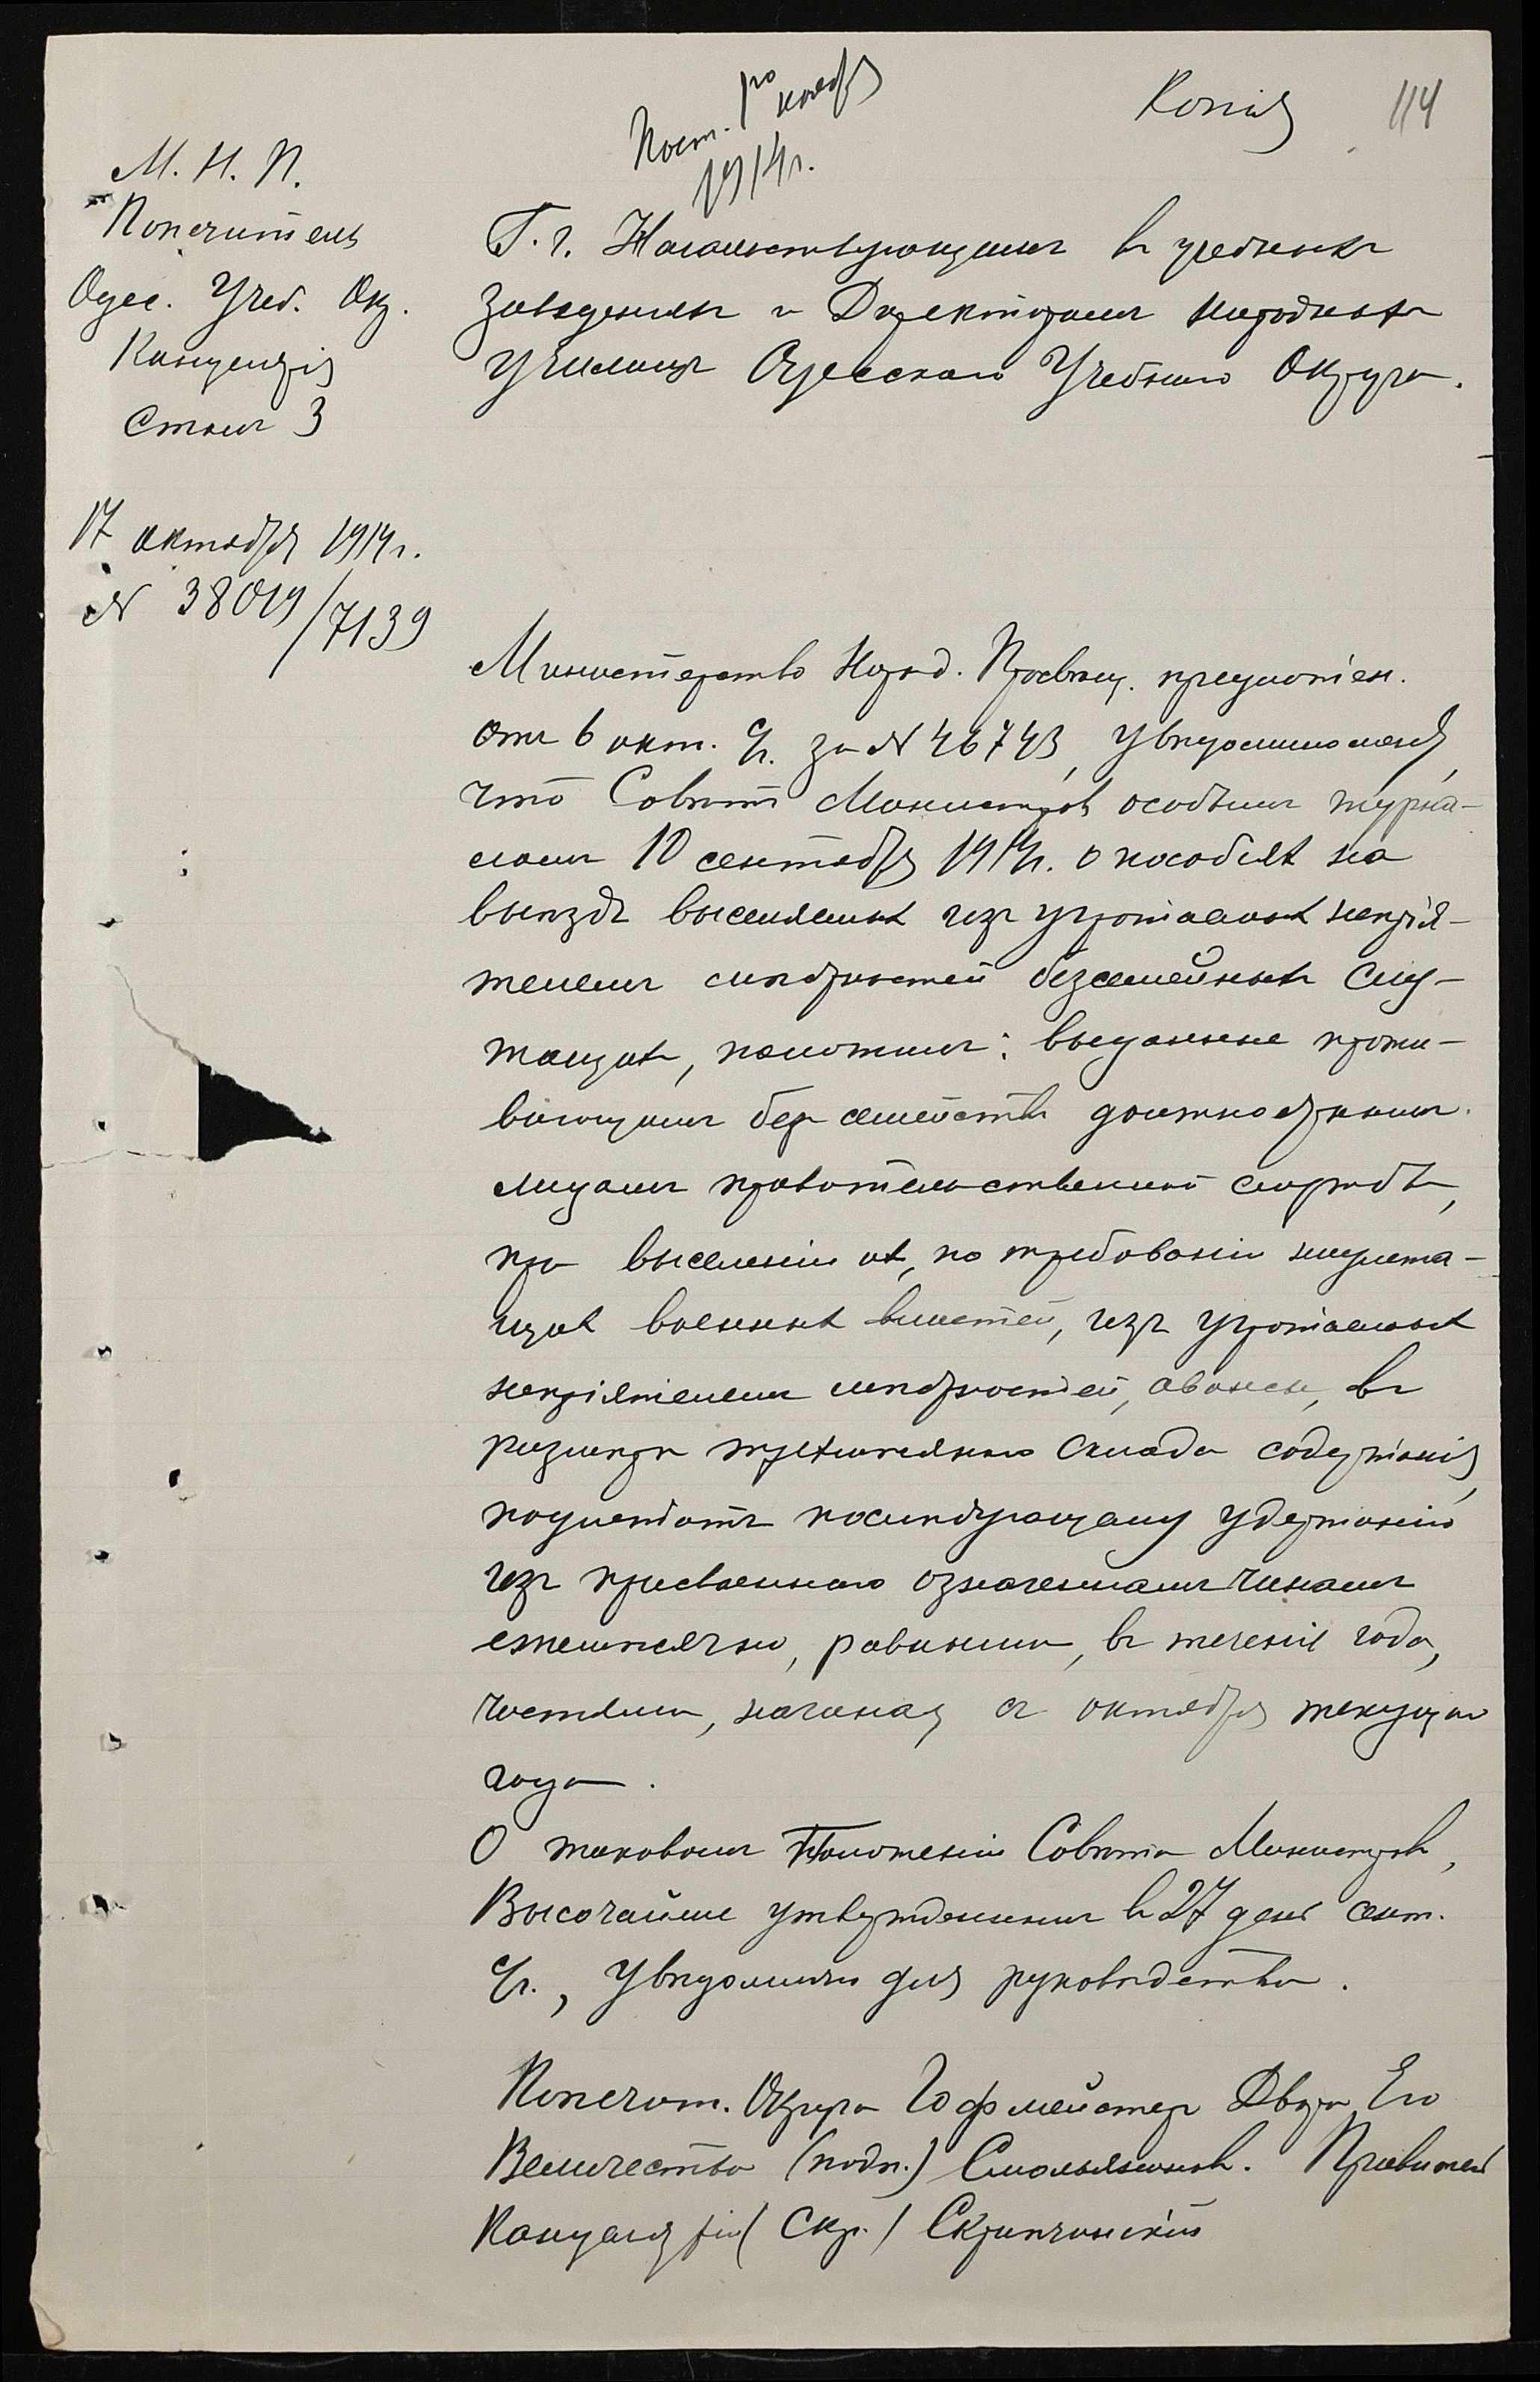 Копія
114
Пост. 1го нояб.
1914 г.
М. Н. П.
Попечитель
Одес. Учеб. Окр.
Канцелярія
Столъ 3
17 октября 1914 г.
№ 38019/7139
Г. г. Начальствующимъ въ учебныхъ
заведеніяхъ и Директорамъ народныхъ
училищъ Одесскаго Учебнаго Округа.
Министерство Народ. Просвѣщ. предложен.
отъ 6 окт. с/г. за № 46743, увѣдомило меня,
что Совѣтъ Министровъ особымъ журна-
ломъ 10 сентября 1914 г. о пособіяхъ на
выѣздъ выселяемыхъ изъ угрожаемыхъ непрія-
телемъ мѣстностей безсемейныхъ слу-
жащихъ, положилъ: выданные прожи-
вающимъ безъ семействъ должностнымъ
лицамъ правительственной службы,
при выселеніи ихъ, по требованію подлежа-
щихъ военныхъ властей, изъ угрожаемыхъ
непріятелемъ мѣстностей, авансы, въ
размѣрѣ трехмѣсячнаго оклада содержанія,
подлежатъ послѣдующему удержанію
изъ присвоеннаго означеннымъ чинамъ
ежемѣсячно, равными, въ теченіе года,
частями, начиная съ октября текущаго
года.
О таковомъ Положеніи Совѣта Министровъ,
Высочайше утвержденномъ въ 27 день сент.
с/г., увѣдомляю для руководства.
Попечит. Округа Гофмейстеръ Двора Его
Величества (подп.) Смольяниновъ. Правитель
Канцеляріи (Скр.)